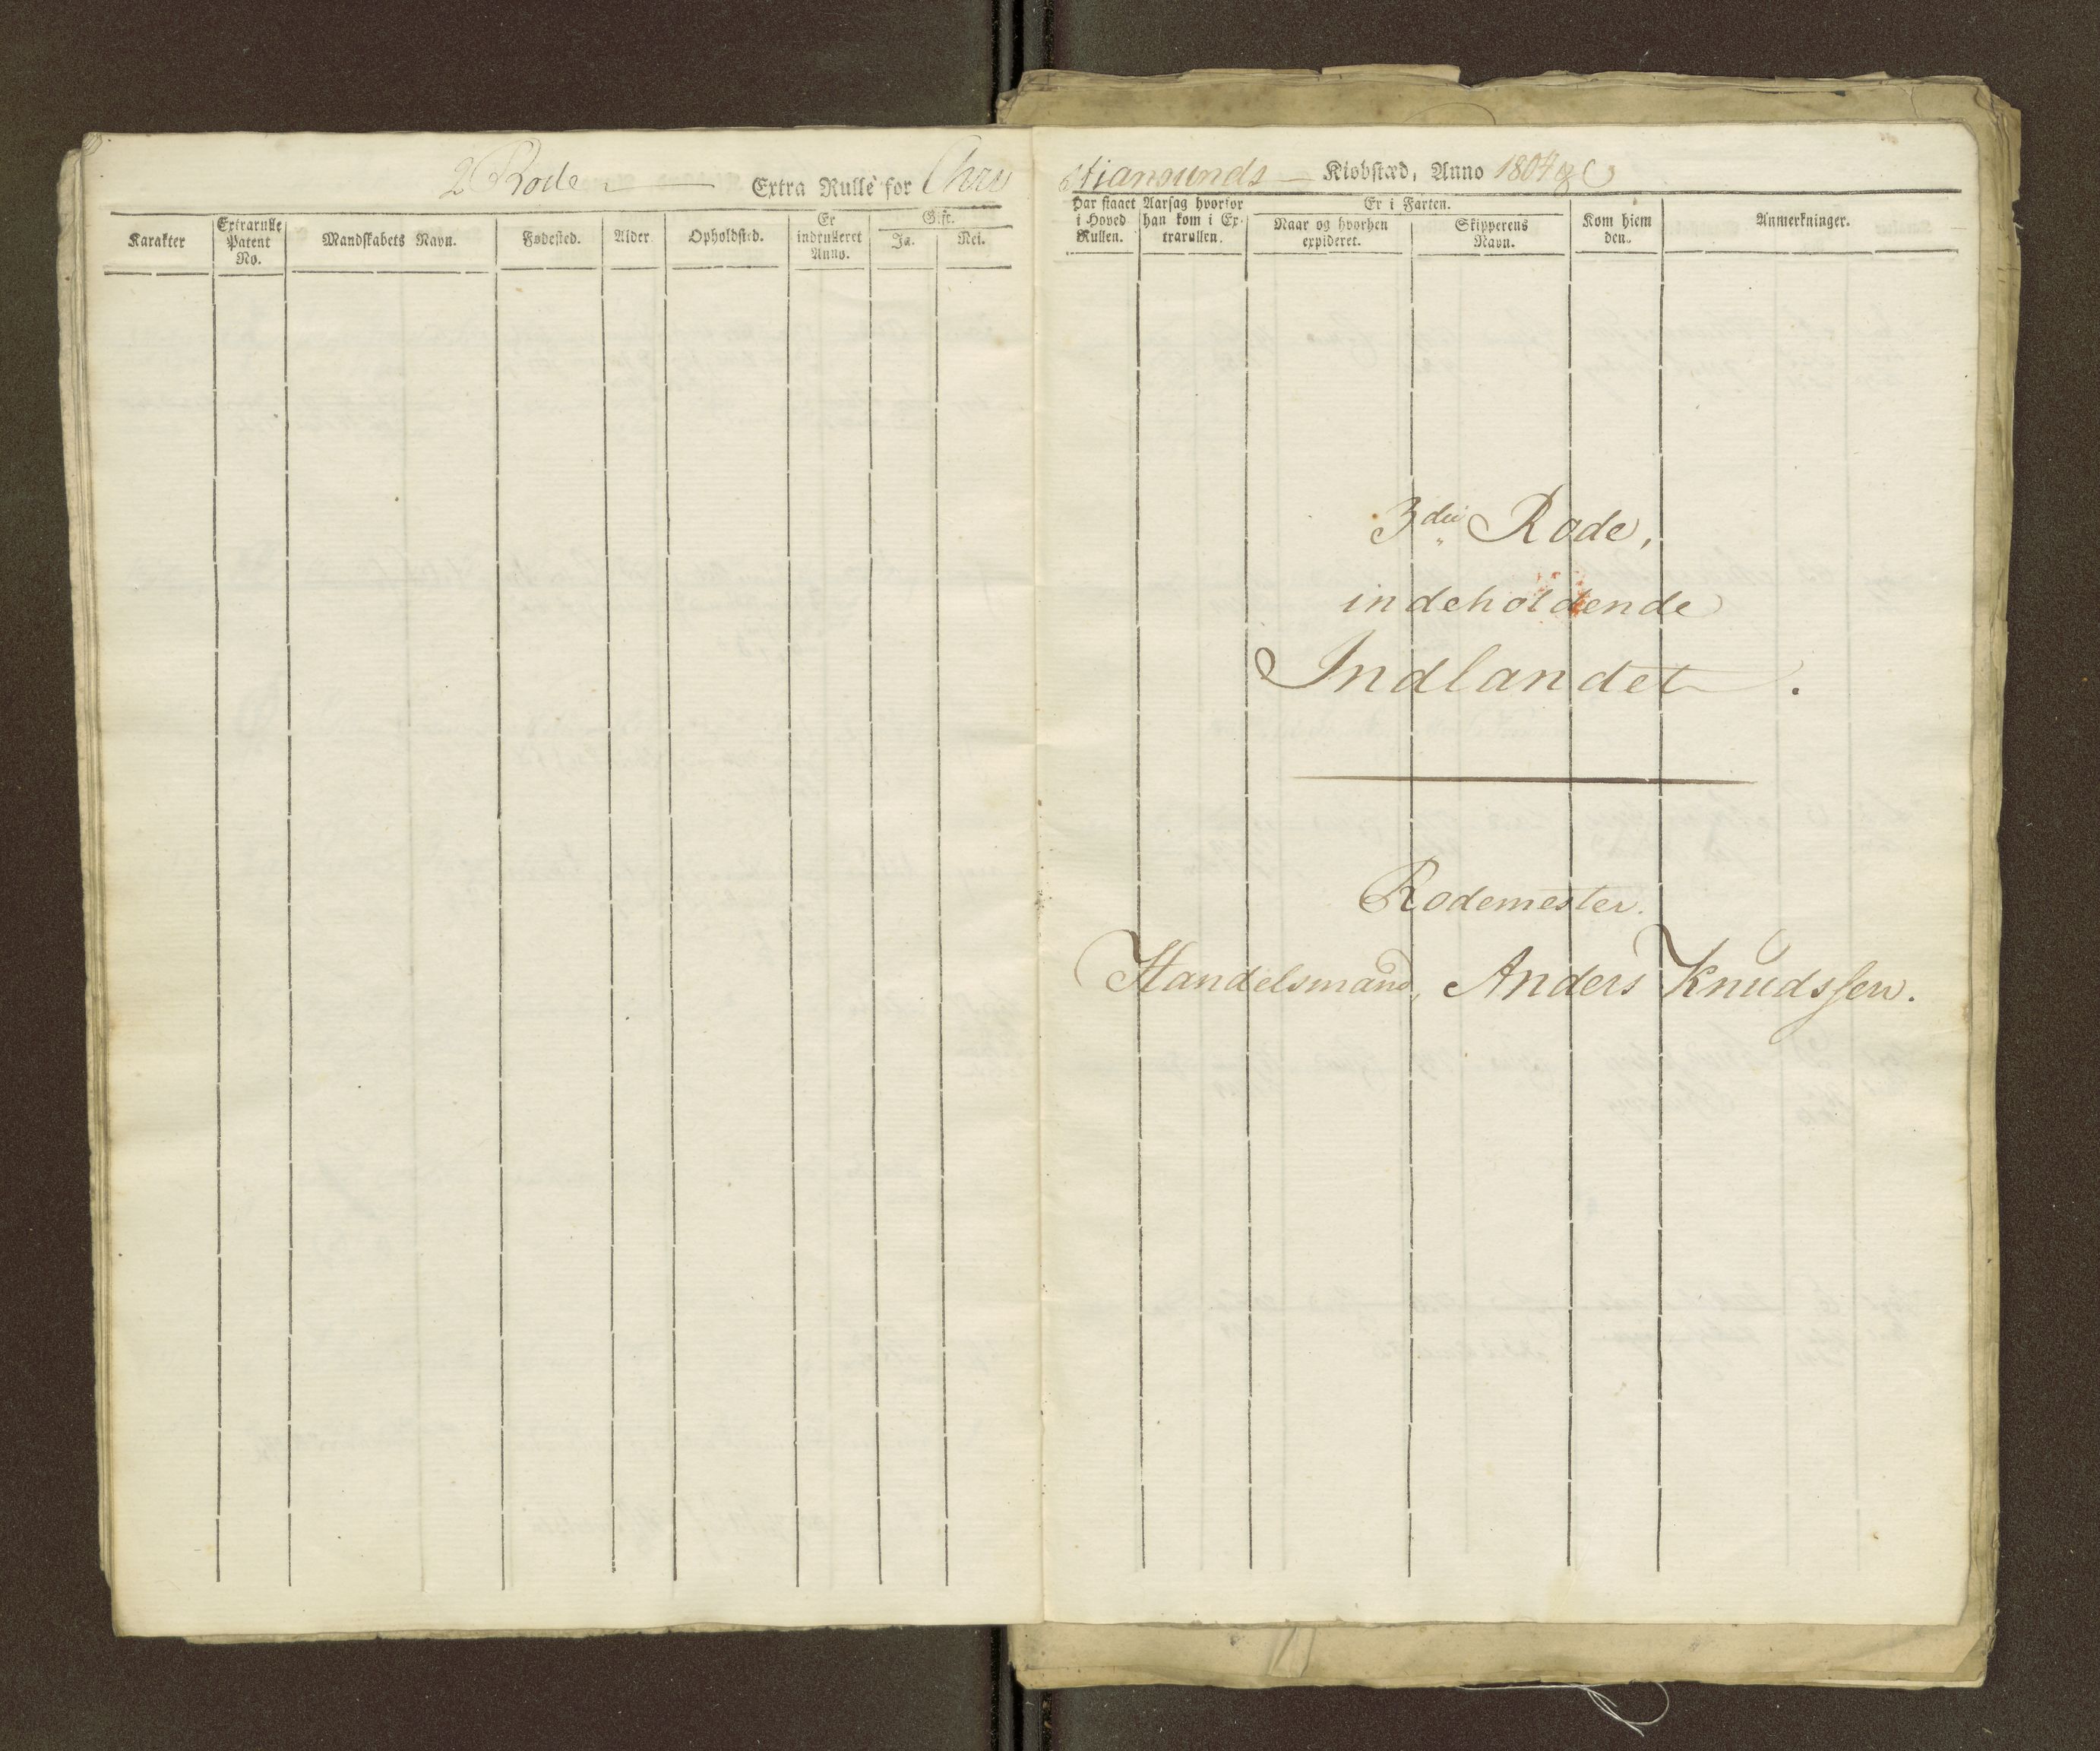 2 Rode Extra Rulle for Chri
Karakter
Extrarulle
Patent
No.
Mandskabets Navn.
Fødested.
Alder
Opholdsted.
Er
indrulleret
Anno.
Gift.
Ja.
Nei.
stiansunds Kiøbstæd, Anno 1804
Har staaet
i Hoved
Rullen.
Aarsag hvorfor
han kom i Ex-
trarullen.
Er i Farten.
Naar og hvorhen
expideret.
Skipperens
Navn.
Kom hiem
den.
Anmerkninger.
3die Rode,
indeholdende
Indlandet.
Rodemester.
Handelsmand, Anders Knudssen.